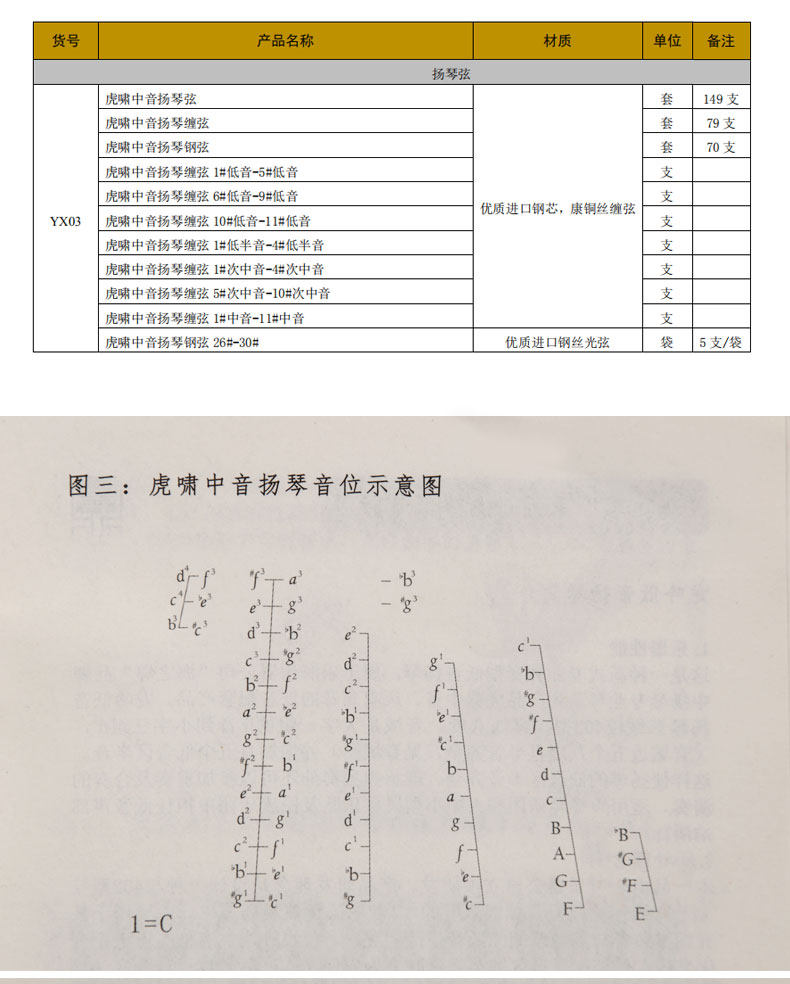 货号 产品名称 材质 单位 备注
扬琴弦
YX03 虎啸中音扬琴弦 优质进口钢芯，康铜丝缠弦 套 149 支
虎啸中音扬琴缠弦 套 79 支
虎啸中音扬琴钢弦 套 70 支
虎啸中音扬琴缠弦 1#低音-5#低音 支
虎啸中音扬琴缠弦 6#低音-9#低音 支
虎啸中音扬琴缠弦 10#低音-11#低音 支
虎啸中音扬琴缠弦 1#低半音-4#低半音 支
虎啸中音扬琴缠弦 1#次中音-4#次中音 支
虎啸中音扬琴缠弦 5#次中音-10#次中音 支
虎啸中音扬琴缠弦 1#中音-11#中音 支
虎啸中音扬琴钢弦 26#-30# 优质进口钢丝光弦 袋 5 支/袋
图三：虎啸中音扬琴音位示意图
d⁴ f³
c⁴ ♭e³
b³ #c³
#f³ a³
e³ g³
d³ ♭b²
c³ #g²
b² f²
a² ♭e²
g² #c²
#f² b¹
e² a¹
d² g¹
c² f¹
♭b¹ ♭e¹
#g¹ #c¹
♭b³
#g³
e²
d²
c²
♭b¹
#g¹
#f¹
e¹
d¹
c¹
♭b
#g
g¹
f¹
♭e¹
#c¹
b
a
g
f
♭e
#c
c¹
♭b
#g
#f
e
d
c
B
A
G
F
♭B
#G
#F
E
1=C